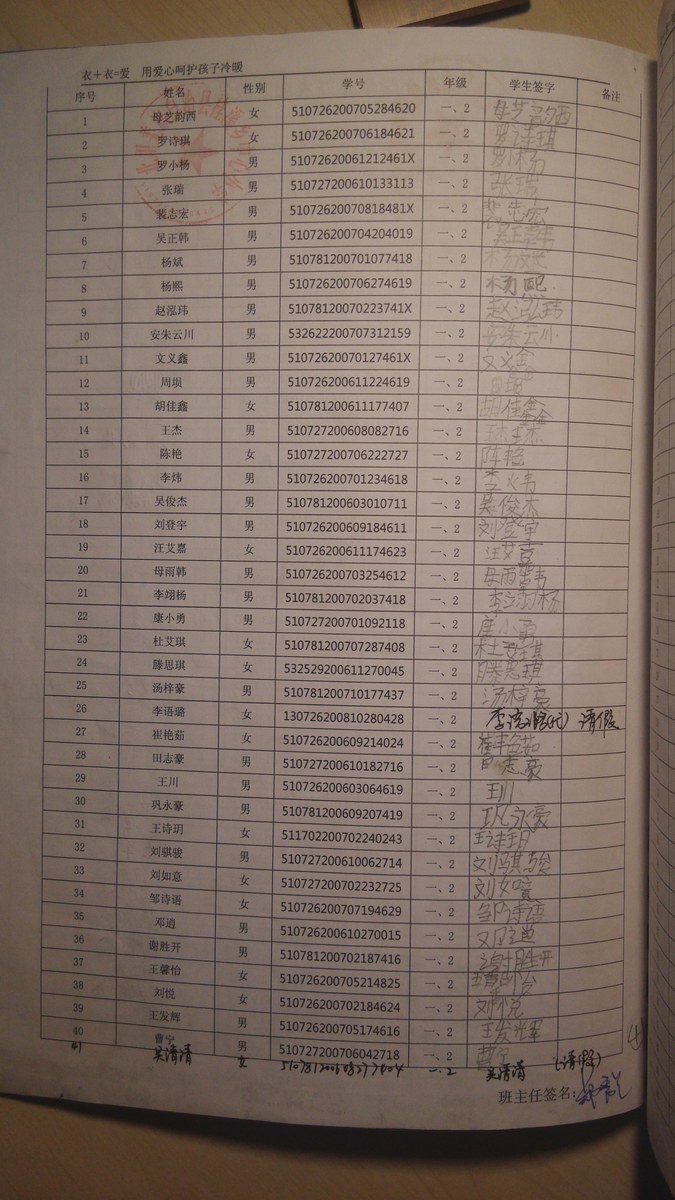 衣+衣=爱 用爱心呵护孩子冷暖
序号 姓名 性别 学号 年级 学生签字 备注
1 母芝韵西 女 510726200705284620 一、2 母芝韵西
2 罗诗琪 女 510726200706184621 一、2 罗诗琪
3 罗小杨 男 51072620061212461X 一、2
4 张瑞 男 510727200610133113 一、2 张瑞
5 裴志宏 男 51072620070818481X 一、2 裴志宏
6 吴正韩 男 510726200704204019 一、2 吴正韩
7 杨斌 男 510781200701077418 一、2 杨斌
8 杨熙 男 510726200706274619 一、2 杨熙
9 赵泓玮 男 51078120070223741X 一、2 赵泓玮
10 安朱云川 男 532622200707312159 一、2 安朱云川
11 文义鑫 男 51072620070127461X 一、2 文义鑫
12 周埙 男 510726200611224619 一、2
13 胡佳鑫 女 510781200611177407 一、2 胡佳鑫
14 王杰 男 510727200608082716 一、2 王杰
15 陈艳 女 510727200706222727 一、2 陈艳
16 李炜 男 510726200701234618 一、2 李炜
17 吴俊杰 男 510781200603010711 一、2 吴俊杰
18 刘登宇 男 510726200609184611 一、2 刘登宇
19 汪艾嘉 女 510726200611174623 一、2 汪艾嘉
20 母雨韩 男 510726200703254612 一、2 母雨韩
21 李翊杨 男 510781200702037418 一、2 李翊杨
22 康小勇 男 510727200701092118 一、2 康小勇
23 杜艾琪 女 510781200707287408 一、2 杜艾琪
24 滕思琪 女 532529200611270045 一、2 滕思琪
25 汤梓豪 男 510781200710177437 一、2 汤梓豪
26 李语璐 女 130726200810280428 一、2 李语璐(代) 请假
27 崔艳茹 女 510726200609214024 一、2 崔艳茹
28 田志豪 男 510727200610182716 一、2 田志豪
29 王川 男 510726200603064619 一、2 王川
30 巩永豪 男 510781200609207419 一、2 巩永豪
31 王诗玥 女 511702200702240243 一、2 王诗玥
32 刘骐骏 男 510727200610062714 一、2 刘骐骏
33 刘如意 女 510727200702232725 一、2 刘如意
34 邹诗语 女 510726200707194629 一、2 邹诗语
35 邓逍 男 510726200610270015 一、2 邓逍
36 谢胜开 男 510781200702187416 一、2 谢胜开
37 王馨怡 女 510726200705214825 一、2 王馨怡
38 刘悦 女 510726200702184624 一、2 刘悦
39 王发辉 男 510726200705174616 一、2 王发辉
40 曹宁 男 510727200706042718 一、2 曹宁
41 吴清清 女 一.2 吴清清 (请假)
班主任签名: